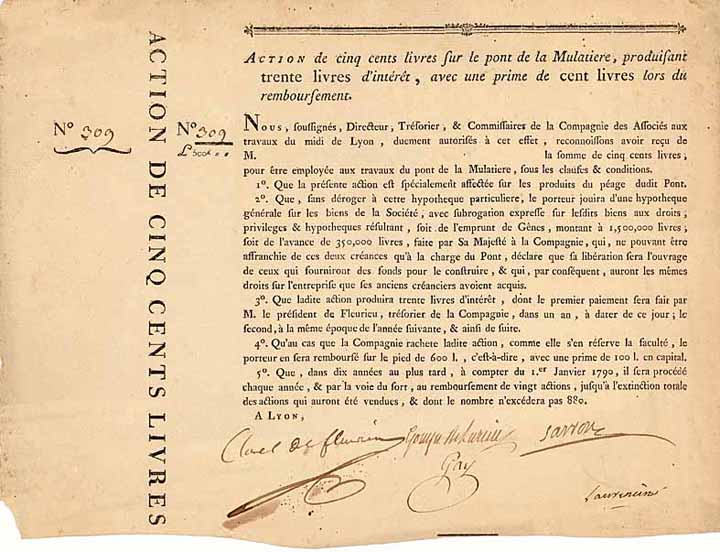 ACTION DE CINQ CENTS LIVRES
Nº 309
Nº 309
ACTION de cinq cents livres ſur le pont de la Mulatiere, produiſant
trente livres d'intérêt, avec une prime de cent livres lors du
rembourſement.
NOUS, ſouſſignés, Directeur, Tréſorier, & Commiſſaires de la Compagnie des Aſſociés aux
travaux du midi de Lyon, duement autoriſés à cet effet, reconnoiſſons avoir reçu de
M. la ſomme de cinq cents livres;
pour être employée aux travaux du pont de la Mulatiere, ſous les clauſes & conditions.
1º. Que la préſente action eſt ſpécialement affectée ſur les produits du péage dudit Pont.
2º. Que, ſans déroger à cette hypotheque particuliere, le porteur jouira d'une hypotheque
générale ſur les biens de la Société, avec ſubrogation expreſſe ſur leſdits biens aux droits,
privileges & hypotheques réſultant, ſoit de l'emprunt de Gênes, montant à 1,500,000 livres;
ſoit de l'avance de 350,000 livres, faite par Sa Majeſté à la Compagnie, qui, ne pouvant être
affranchie de ces deux créances qu'à la charge du Pont, déclare que ſa libération ſera l'ouvrage
de ceux qui fourniront des fonds pour le conſtruire, & qui, par conſéquent, auront les mêmes
droits ſur l'entrepriſe que ſes anciens créanciers avoient acquis.
3º. Que ladite action produira trente livres d'intérêt, dont le premier paiement ſera fait par
M. le préſident de Fleurieu, tréſorier de la Compagnie, dans un an, à dater de ce jour; le
ſecond, à la même époque de l'année ſuivante, & ainſi de ſuite.
4º. Qu'au cas que la Compagnie rachete ladite action, comme elle s'en réſerve la faculté, le
porteur en ſera rembourſé ſur le pied de 600 l., c'eſt-à-dire, avec une prime de 100 l. en capital.
5º. Que, dans dix années au plus tard, à compter du 1.er Janvier 1790, il ſera procédé
chaque année, & par la voie du ſort, au rembourſement de vingt actions, juſqu'à l'extinction totale
des actions qui auront été vendues, & dont le nombre n'excédera pas 880.
A LYON,
Claret de fleurieu
Gay